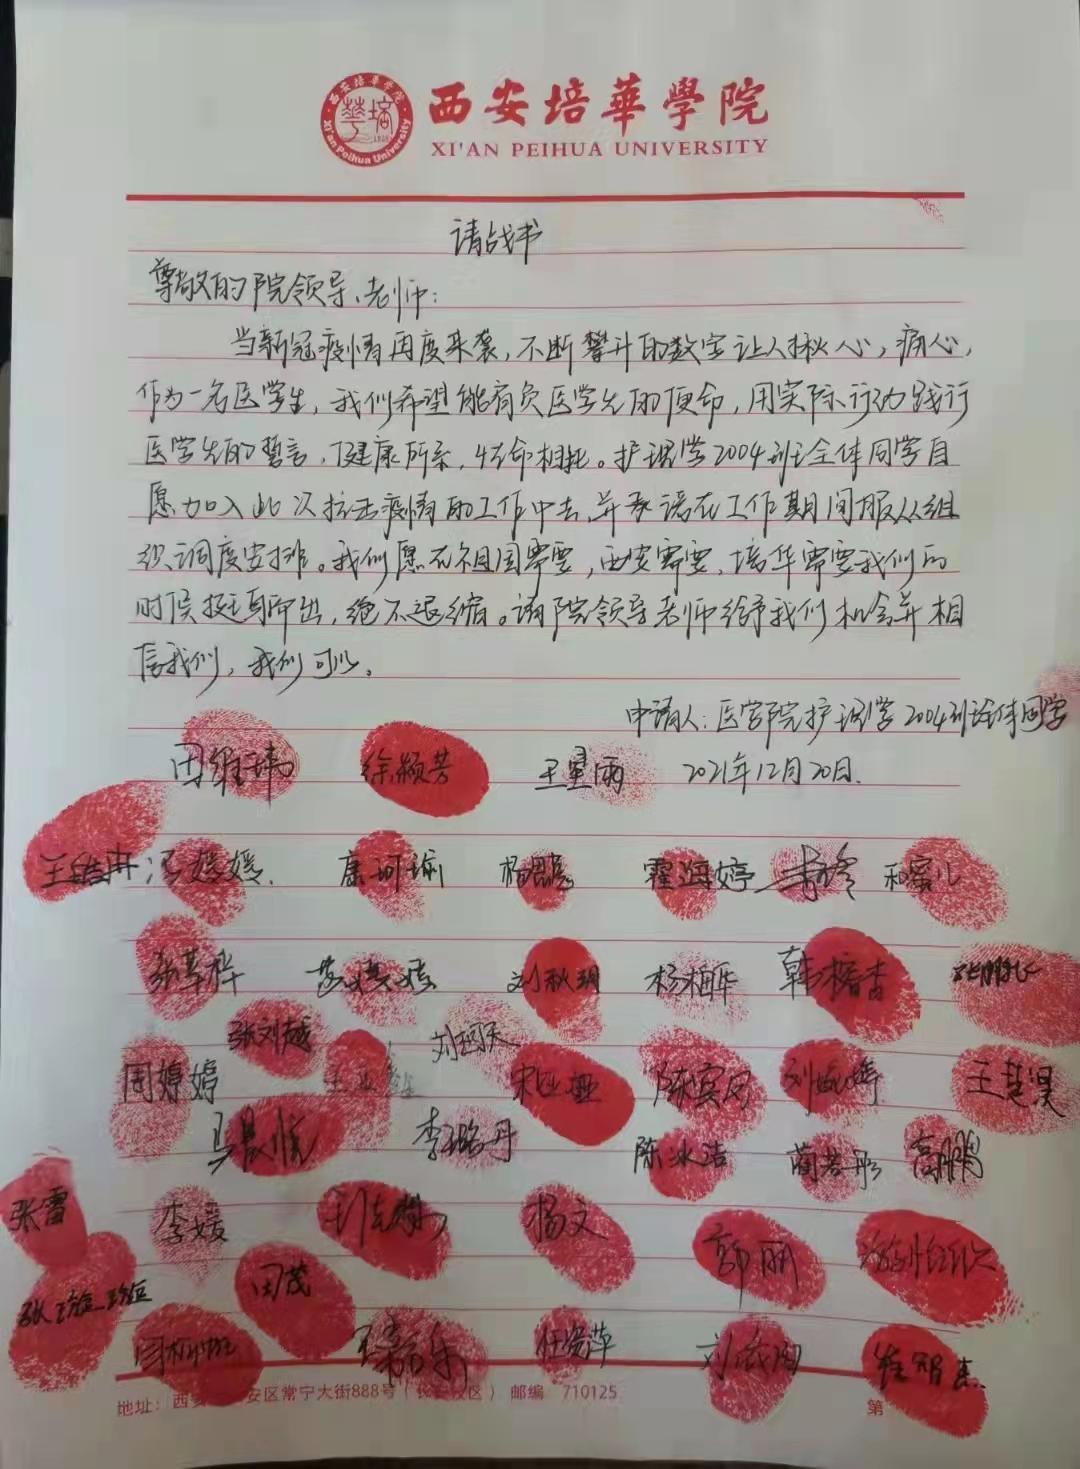 西安培華學院
XI'AN PEIHUA UNIVERSITY
西安培华学院
Xi'an Peihua University
请战书
尊敬的院领导、老师：
当新冠疫情再度来袭，不断攀升的数字让人揪心，痛心，
作为一名医学生，我们希望能肩负医学生的使命，用实际行动践行
医学生的誓言，健康所系，性命相托。护理学2004班全体同学自
愿加入此次抗击疫情的工作中去，并承诺在工作期间服从组
织调度安排。我们愿在祖国需要，西安需要，培华需要我们的
时候挺身而出，绝不退缩。请院领导老师给予我们机会并相
信我们，我们可以。
申请人：医学院护理学2004班全体同学
田维 徐颖芳 王星雨 2021年12月20日.
冯媛媛. 康珂瑜 霍海婷 和蜜儿
刘秋玥 杨柳华 韩椿杏
张刘越
周婷婷 宋亚娅 陈宾凤 王慧昊
马晨悦 李璐丹 陈冰洁 蔺若彤 高鹏
张雷 李媛 杨文 郭丽
田茂
王嘉乐 任 萍 刘 崔智杰
地址：西安 安区常宁大街888号（长安校区） 邮编 710125 第